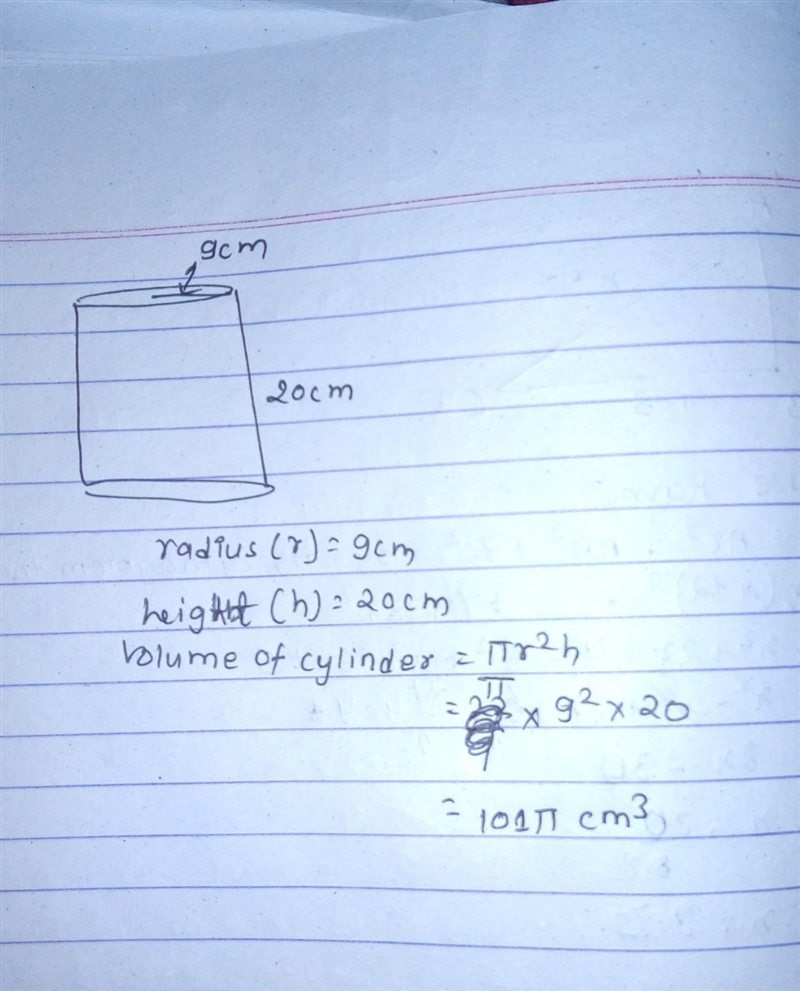 9cm
20cm
radius (r) = 9cm
height (h) = 20cm
Volume of cylinder = πr²h
= π × 9² × 20
= 101π cm³